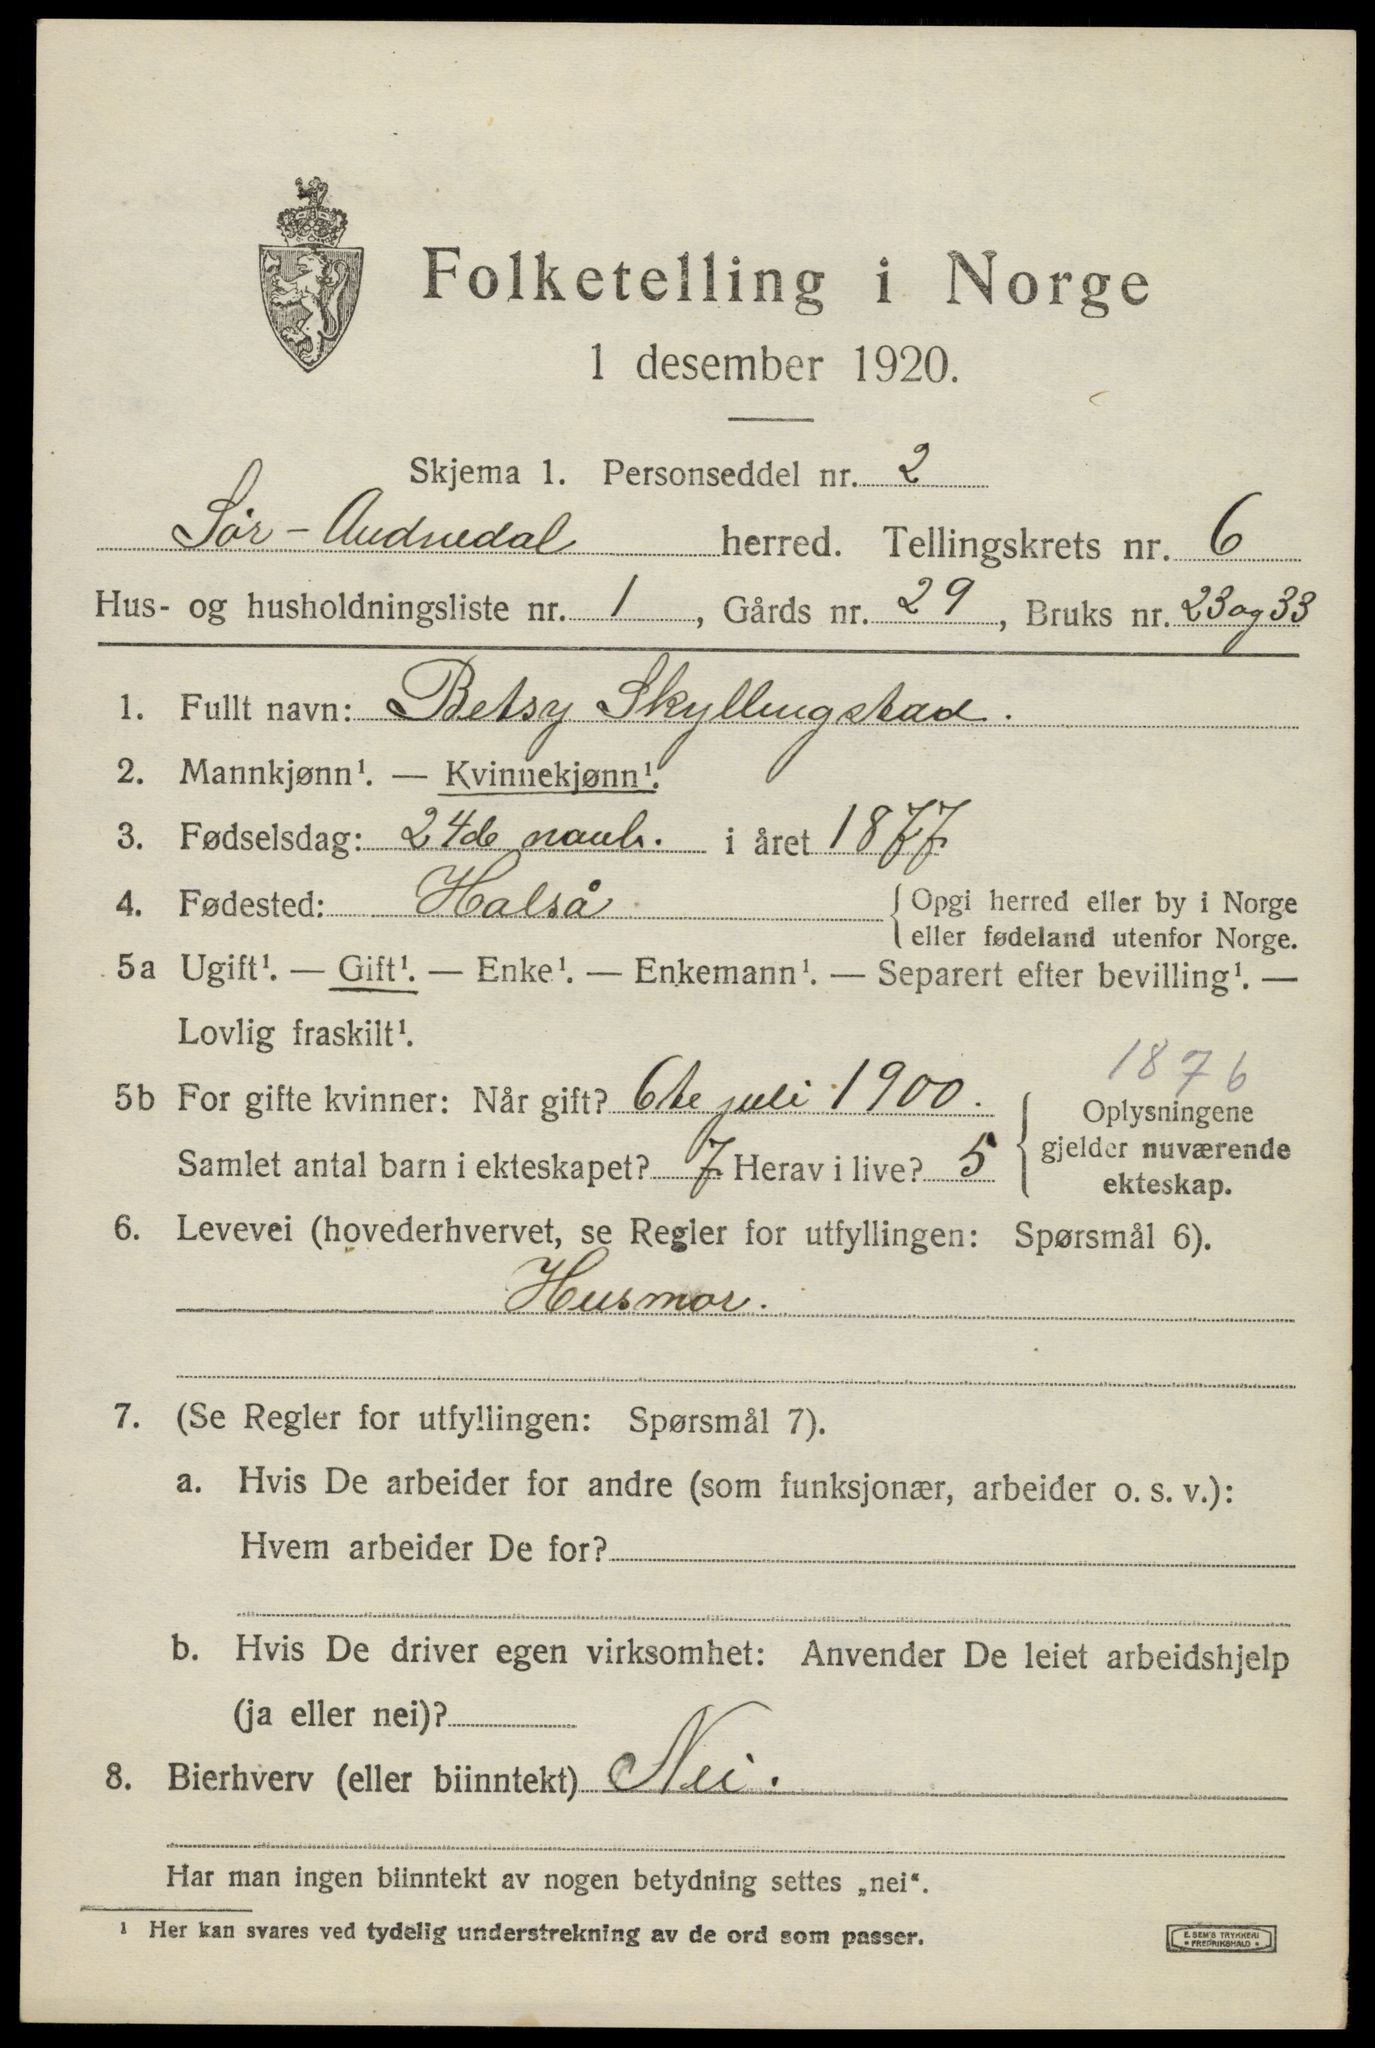 Folketelling i Norge
1 desember 1920.
Skjema 1. Personseddel nr. 2
Sør-Audnedal herred. Tellingskrets nr. 6
Hus- og husholdningsliste nr. 1, Gårds nr. 29, Bruks nr. 23 og 33
1. Fullt navn: Betsy Skyllingstad.
2. Mannkjønn¹. — Kvinnekjønn¹.
3. Fødselsdag: 24de novbr. i året 1877
4. Fødested: Halså {Opgi herred eller by i Norge
eller fødeland utenfor Norge.
5a Ugift¹. — Gift¹. — Enke¹. — Enkemann¹. — Separert efter bevilling¹. —
Lovlig fraskilt¹.
1876
5b For gifte kvinner: Når gift? 6te juli 1900. { Oplysningene
Samlet antal barn i ekteskapet? 7 Herav i live? 5 gjelder nuværende
ekteskap.
6. Levevei (hovederhvervet, se Regler for utfyllingen: Spørsmål 6).
Husmor.
7. (Se Regler for utfyllingen: Spørsmål 7).
a. Hvis De arbeider for andre (som funksjonær, arbeider o. s. v.):
Hvem arbeider De for?
b. Hvis De driver egen virksomhet: Anvender De leiet arbeidshjelp
(ja eller nei)?
8. Bierhverv (eller biinntekt) Nei.
Har man ingen biinntekt av nogen betydning settes „nei“.
¹ Her kan svares ved tydelig understrekning av de ord som passer.
E. SEM'S TRYKKERI
• FREDRIKSHALD •